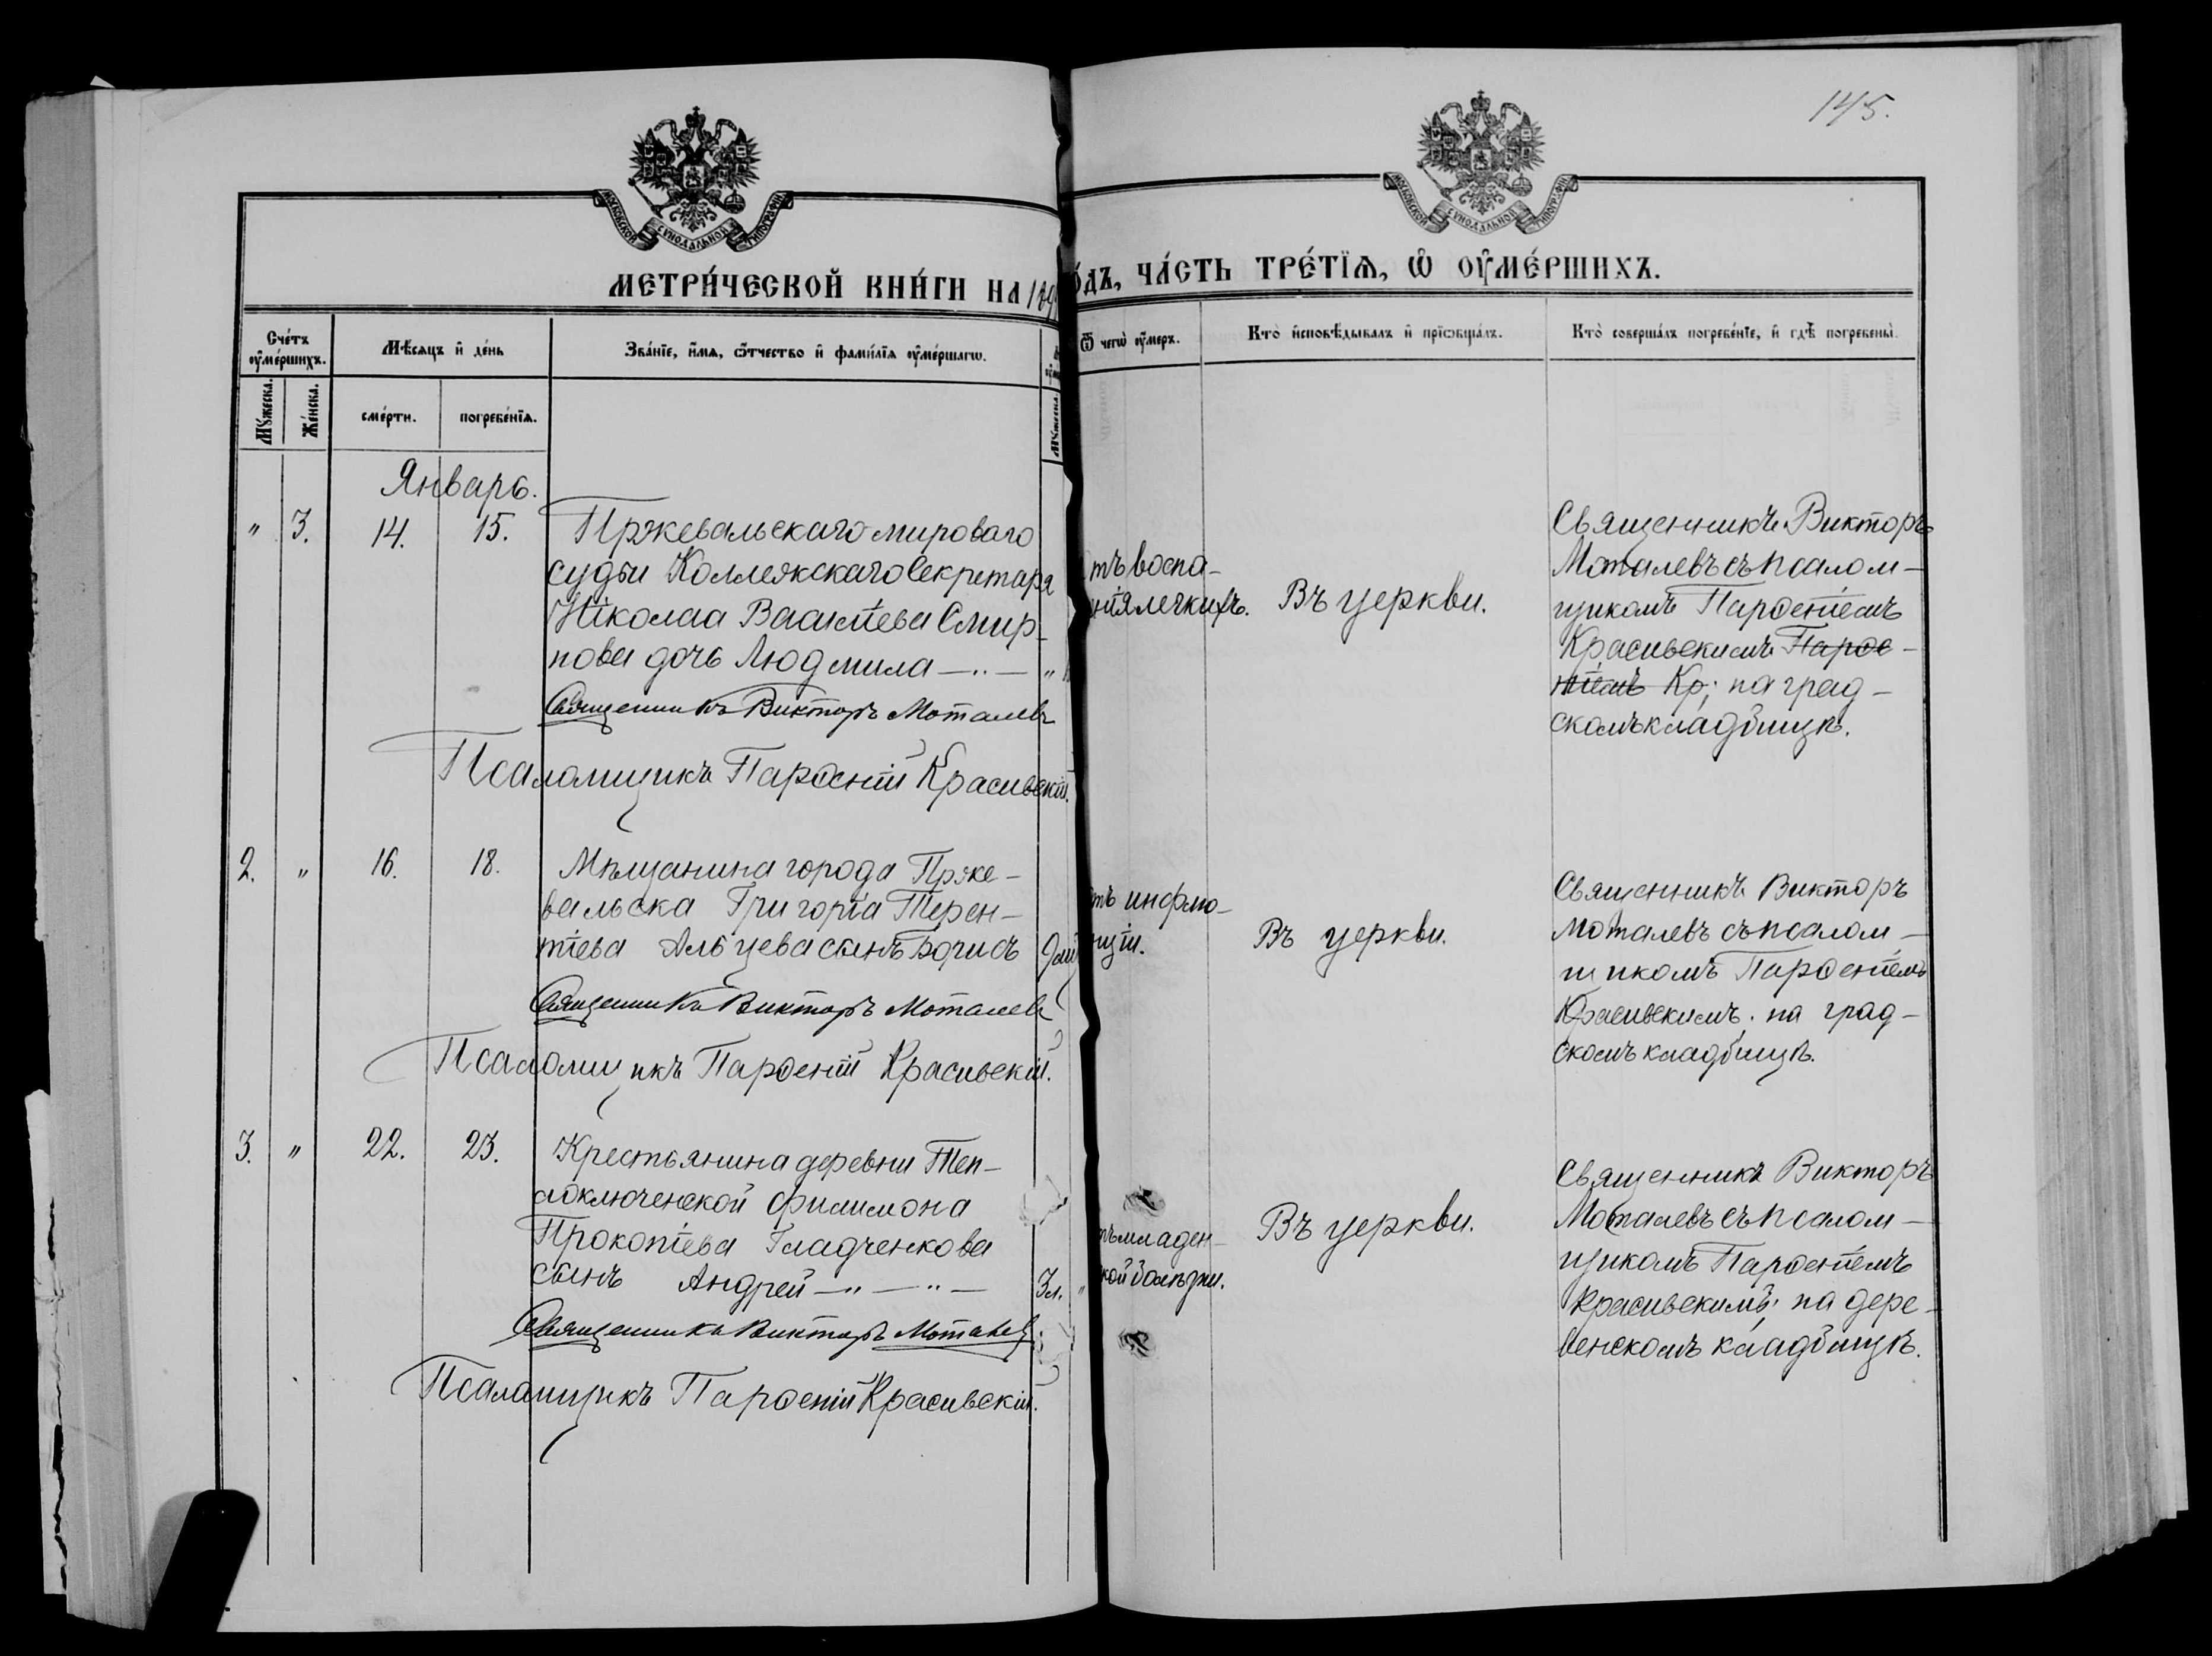 145.
МОСКОВСКОЙ СѴНОДАЛЬНОЙ ТИПОГРАФІИ
МОСКОВСКОЙ СѴНОДАЛЬНОЙ ТИПОГРАФІИ
МЕТРИ́ЧЕСКОЙ КНИ́ГИ НА 189
О́ДЪ, ЧА́СТЬ ТРЕ́ТІѦ, Ѽ ОУ҆МЕ́РШИХЪ.
Сче́тъ оу҆ме́ршихъ.
Мѣ́сѧцъ и҆ де́нь
Зва́нїе, и҆́мѧ, ѻ҆́тчество и҆ фами́лїѧ оу҆ме́ршагѡ.
Ѿ чегѡ̀ оу҆́меръ.
Кто̀ и҆сповѣ́дывалъ и҆ прїѻбща́лъ.
Кто̀ соверша́лъ погребе́нїе, и҆ гдѣ̀ погребены̀.
Мꙋ́жеска.
Же́нска.
сме́рти.
погребе́нїѧ.
Мꙋ́жеска
Январь.
" 3. 14. 15.
Пржевальскаго мироваго
судьи Коллежскаго Секретаря
Николая Васильева Смир-
нова дочь Людмила —"— "
Священникъ Викторъ Моталевъ
Псаломщикъ Парѳеній Красивскій.
тъ воспа-
нія легкихъ.
Въ церкви.
Священникъ Викторъ
Моталевъ съ псалом-
щикомъ Парѳеніемъ
Красивскимъ Парѳе-
ніемъ Кр; на град-
скомъ кладбищѣ.
2. " 16. 18.
Мѣщанина города Прже-
вальска Григорія Терен-
тіева Альцева сынъ Борисъ
Священникъ Викторъ Моталевъ
Псаломщикъ Парѳеній Красивскій.
тъ инфлю-
нціи.
Въ церкви.
Священникъ Викторъ
Моталевъ съ псалом-
щикомъ Парѳеніемъ
Красивскимъ; на град-
скомъ кладбищѣ.
3. " 22. 23.
Крестьянина деревни Теп-
лоключенской Филимона
Прокопіева Гладченкова
сынъ Андрей —"—"— 3 л. "
Священникъ Викторъ Моталевъ
Псаломщикъ Парѳеній Красивскій.
тъ младен-
кой болѣзни.
Въ церкви.
Священникъ Викторъ
Моталевъ съ псалом-
щикомъ Парѳеніемъ
Красивскимъ; на дере-
венскомъ кладбищѣ.